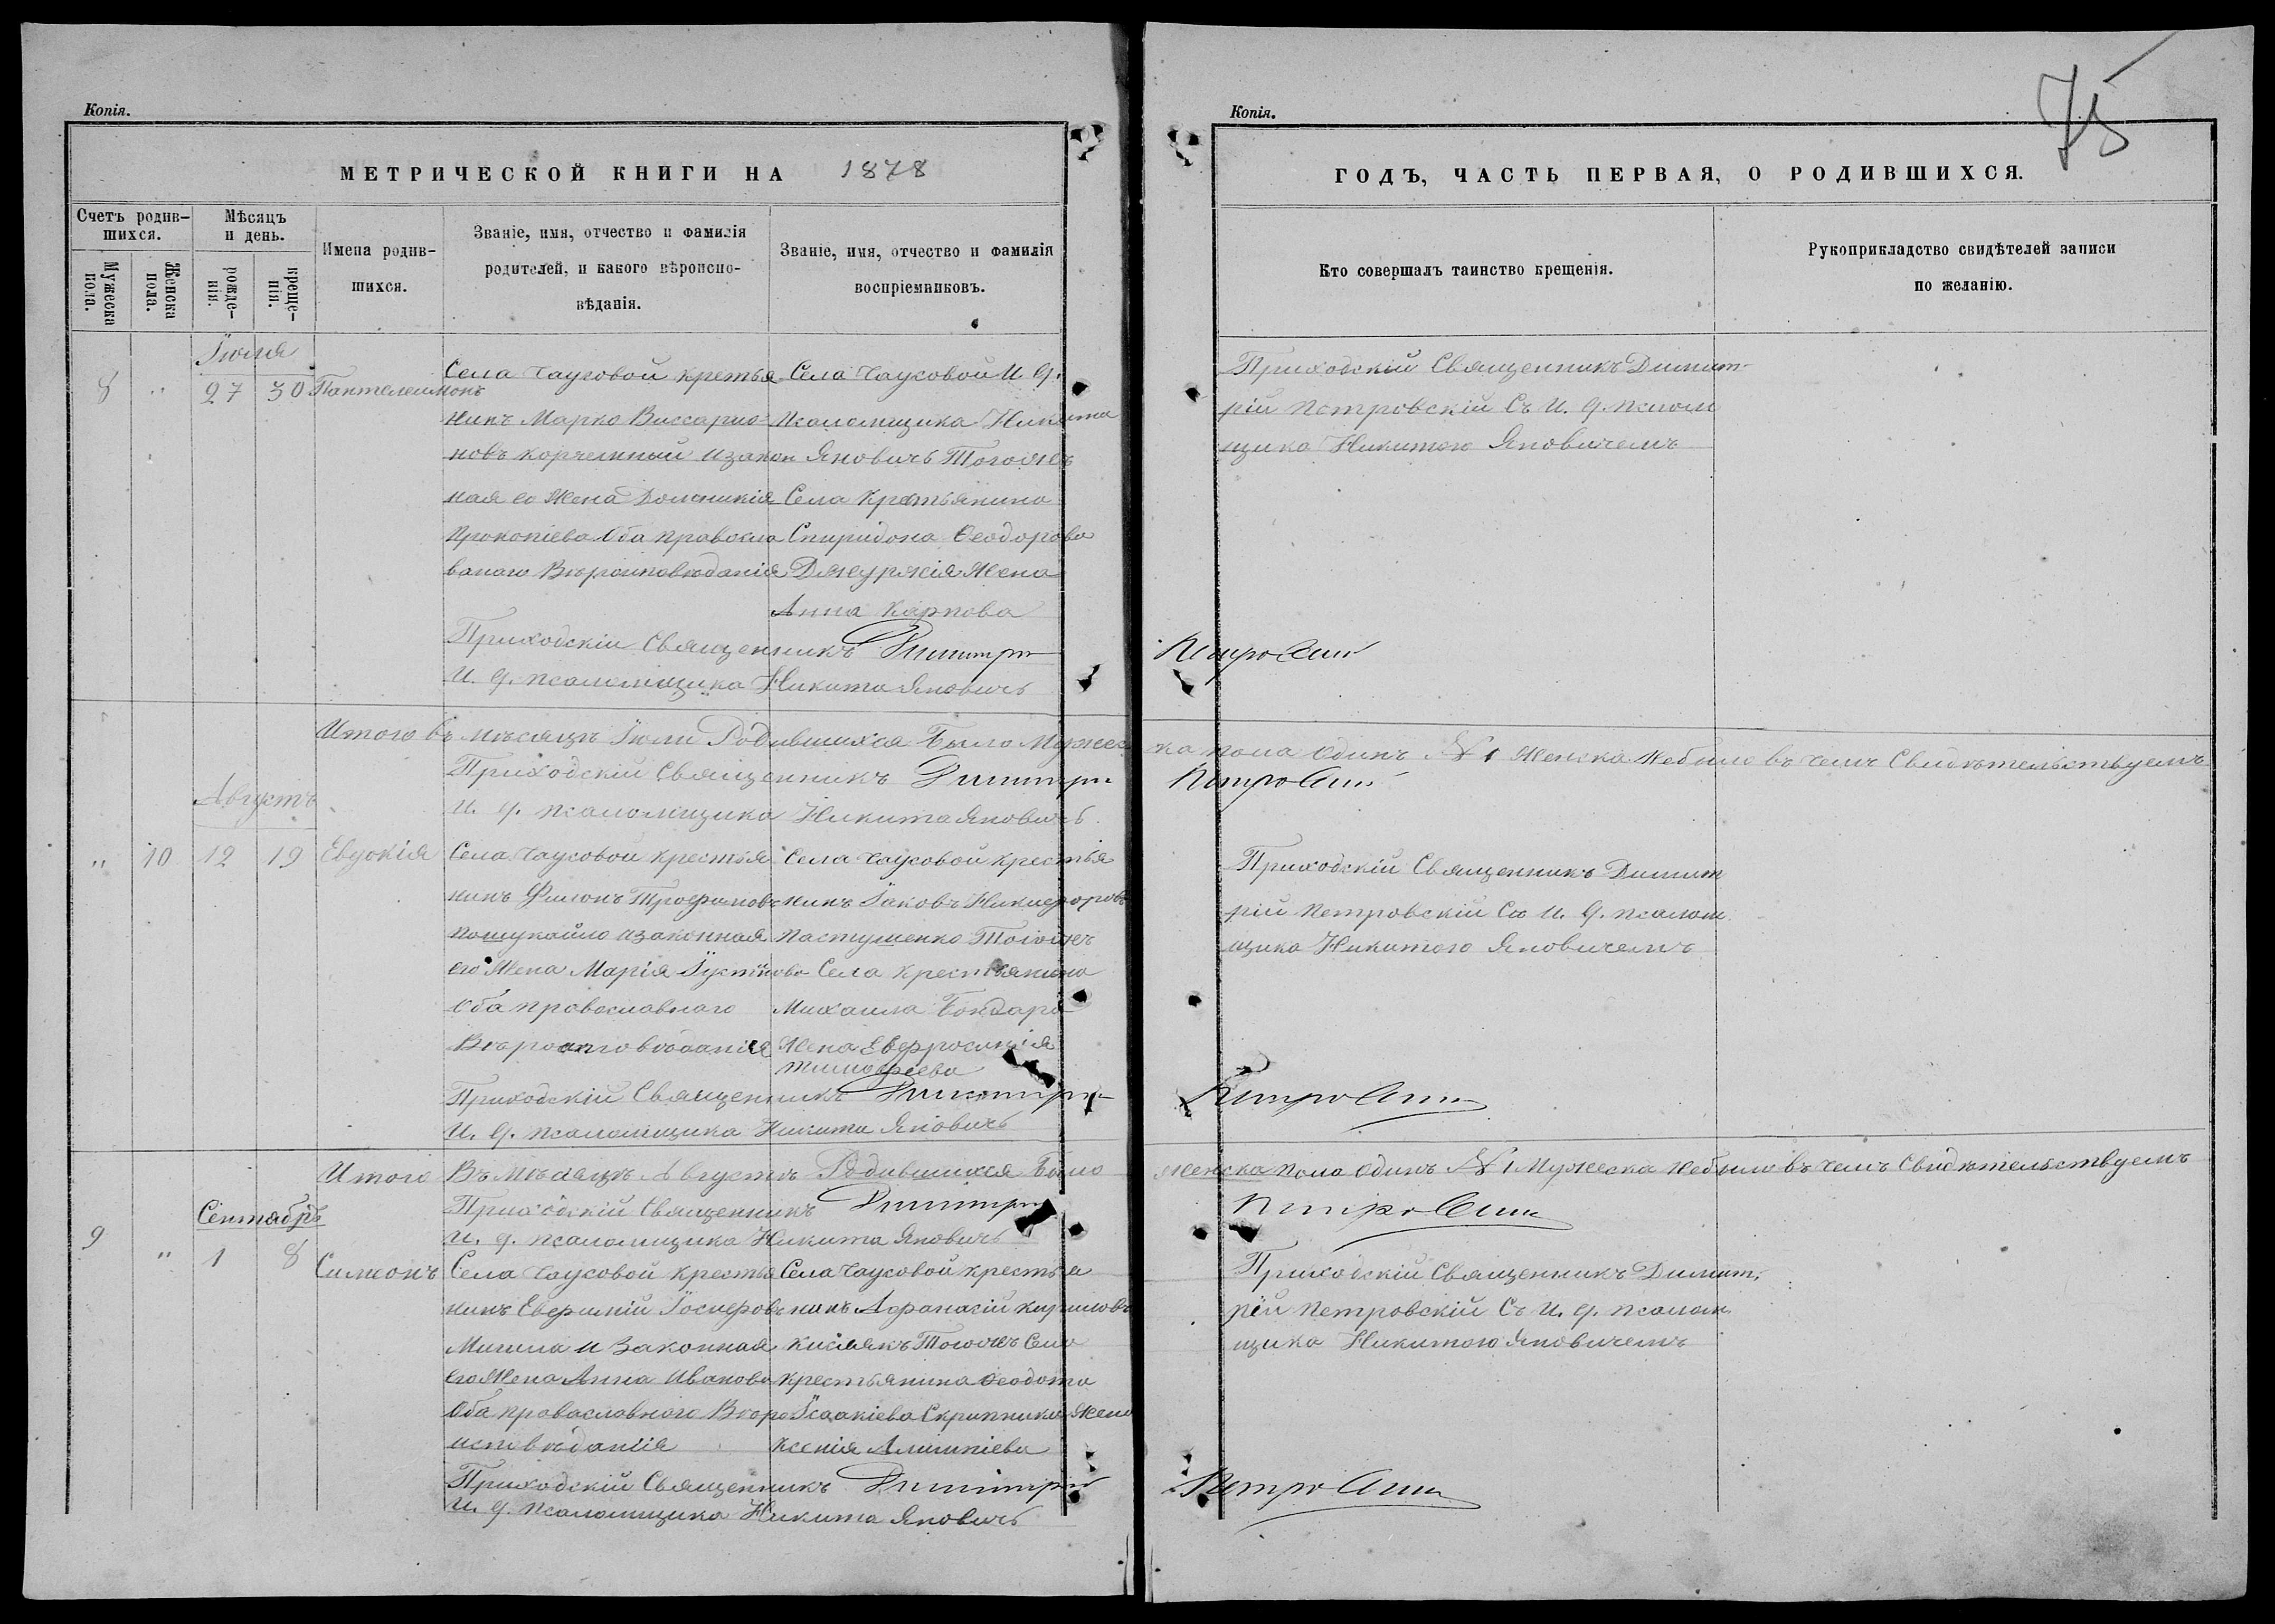 Копія.
МЕТРИЧЕСКОЙ КНИГИ НА 1878
Счетъ родив-
шихся.
Мѣсяцъ
и день.
Мужеска
пола.
Женска
пола.
рожде-
нія.
креще-
нія.
Имена родив-
шихся.
Званіе, имя, отчество и фамилія
родителей, и какого вѣроиспо-
вѣданія.
Званіе, имя, отчество и фамилія
воспріемниковъ.
Іюля
8 " 27 30 Пантелеимонъ
Села Чаусовой крестья
нинъ Марко Виссарио-
новъ Корчемный изакон
ная его жена Домникія
Прокопіева Оба правосла
внаго Вѣроисповѣданія
Села Чаусовой И. д.
псаломщика Никита
Яновичъ Тогожъ
Села Крестьянина
Спиридона Ѳеодорова
Джуржія жена
Анна Карпова
Приходскій Священникъ Димитрій
И. д. псаломщика Никита Яновичъ
Итого въ мѣсяцѣ Іюли Родившихся Было Мужес
Приходскій Священникъ Димитрій
И. д. псаломщика Никита Яновичъ
Августъ
" 10 12 19 Евдокія
Села Чаусовой Крестья
нинъ Филонъ Трофимовъ
Пошукайло изаконная
его жена Марія Іустинова
Оба православнаго
Вѣроисповѣданія
Села Чаусовой Крестья
нинъ Іаковъ Никифоровъ
Пастушенко Тогожъ
Села Крестьянина
Михаила Бондаря
жена Евфросинія
Тимофеева
Приходскій Священникъ Димитрій
И. д. псаломщика Никита Яновичъ
Итого Въ Мѣсяцѣ Августѣ Родившихся Было
Приходскій Священникъ Димитрій
И. д. псаломщика Никита Яновичъ
Сентябрь
9 " 1 8 Симеонъ
Села Чаусовой Крестья
нинъ Евфимій Іосифовъ
Могила и Законная
его жена Анна Иванова
Оба православнаго Вѣро
исповѣданія
Села Чаусовой Крестья
нинъ Афанасій Кириловъ
Кисlякъ Тогожъ Села
Крестьянина Ѳеодота
Ісаакіева Скрипника жена
Ксенія Алимпіева
Приходскій Священникъ Димитрій
И. д. псаломщика Никита Яновичъ
Копія.
75
ГОДЪ, ЧАСТЬ ПЕРВАЯ, О РОДИВШИХСЯ.
Кто совершалъ таинство крещенія.
Рукоприкладство свидѣтелей записи
по желанію.
Приходскій Священникъ Димит-
рій Петровскій Съ И. д. псалом
щика Никитою Яновичемъ
Петровскій
ка пола Одинъ № 1 Женска небыло въ чемъ Свидѣтельствуемъ
Петровскій
Приходскій Священникъ Димит
рій Петровскій Съ И. д. псалом
щика Никитою Яновичемъ
Петровскій
Женска пола одинъ № 1 Мужеска небыло въ чемъ Свидѣтельствуемъ
Петровскій
Приходскій Священникъ Димит-
рій Петровскій Съ И. д. псалом
щика Никитою Яновичемъ
Петровскій